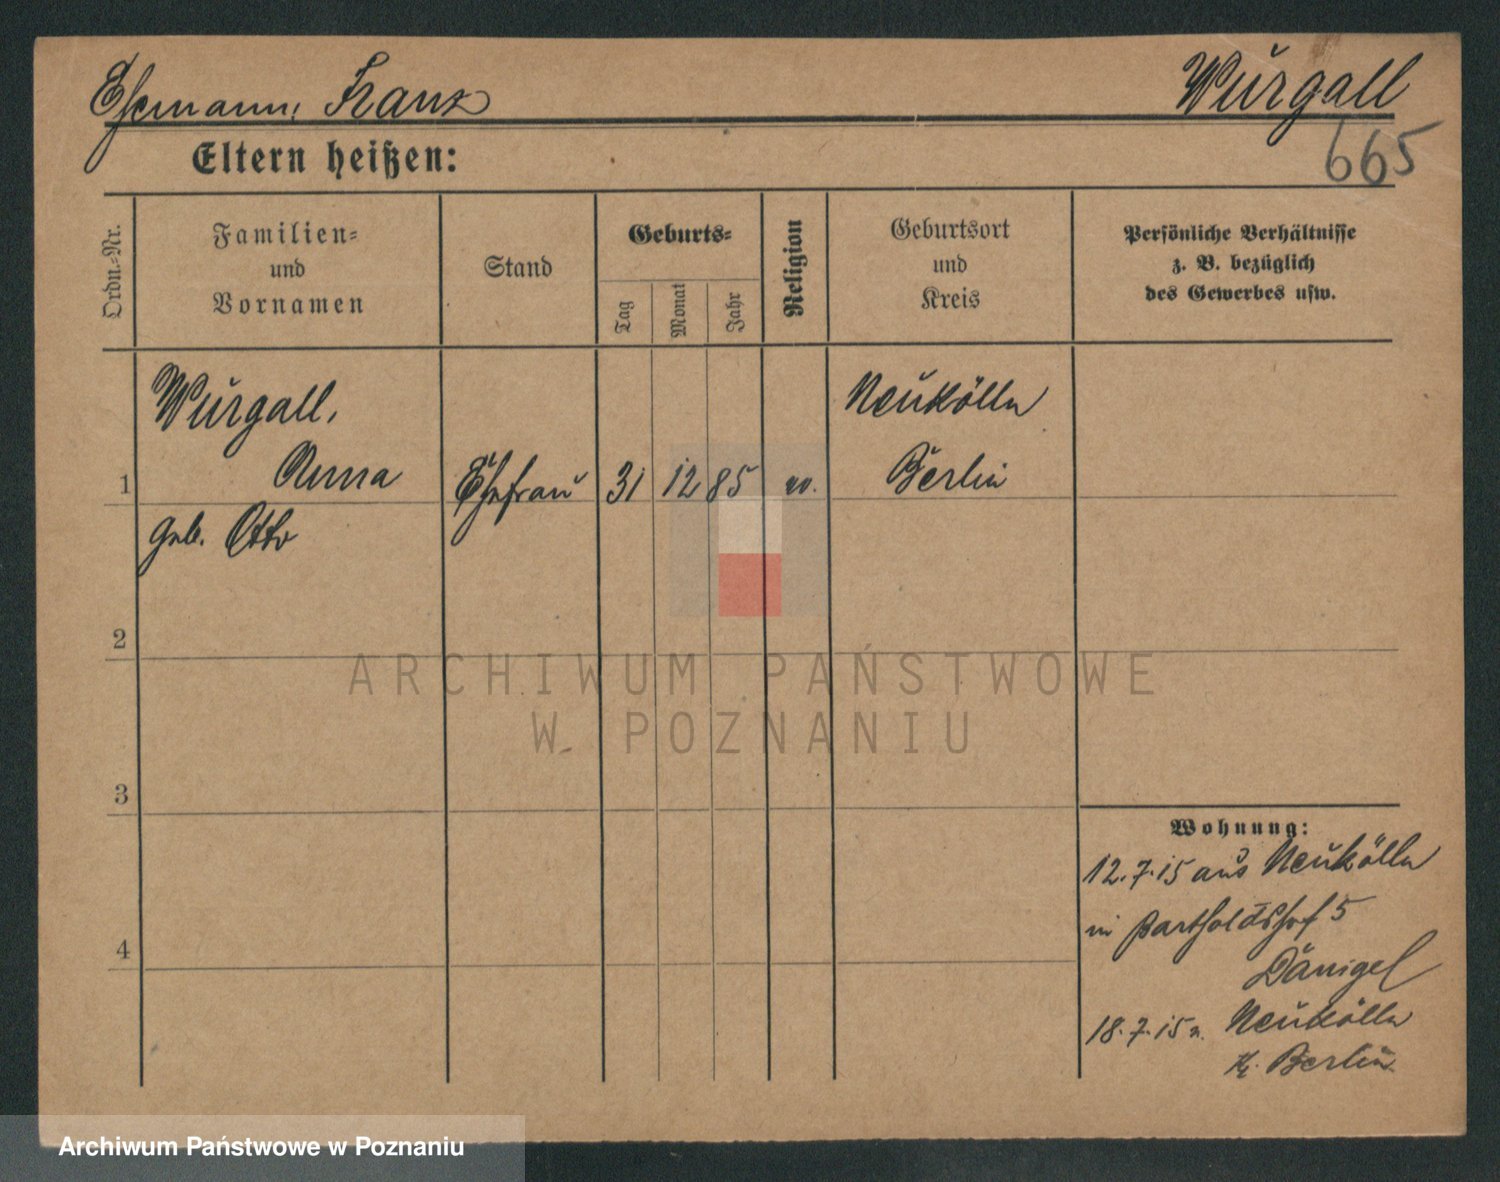 Ehemann, Franz
Wurgall
665
Eltern heißen:
Ordn.-Nr.
Familien-
und
Vornamen
Stand
Geburts-
Tag
Monat
Jahr
Religion
Geburtsort
und
Kreis
Persönliche Verhältnisse
z. B. bezüglich
des Gewerbes usw.
Wurgall,
Anna
geb. Otto
1
Ehefrau
31
12
85
ev.
Neukölln
Berlin
2
3
4
Wohnung:
12.7.15 aus Neukölln
in Bartholdshof 5
Dänigel
18.7.15 n. Neukölln
K. Berlin
ARCHIWUM PAŃSTWOWE
W POZNANIU
Archiwum Państwowe w Poznaniu